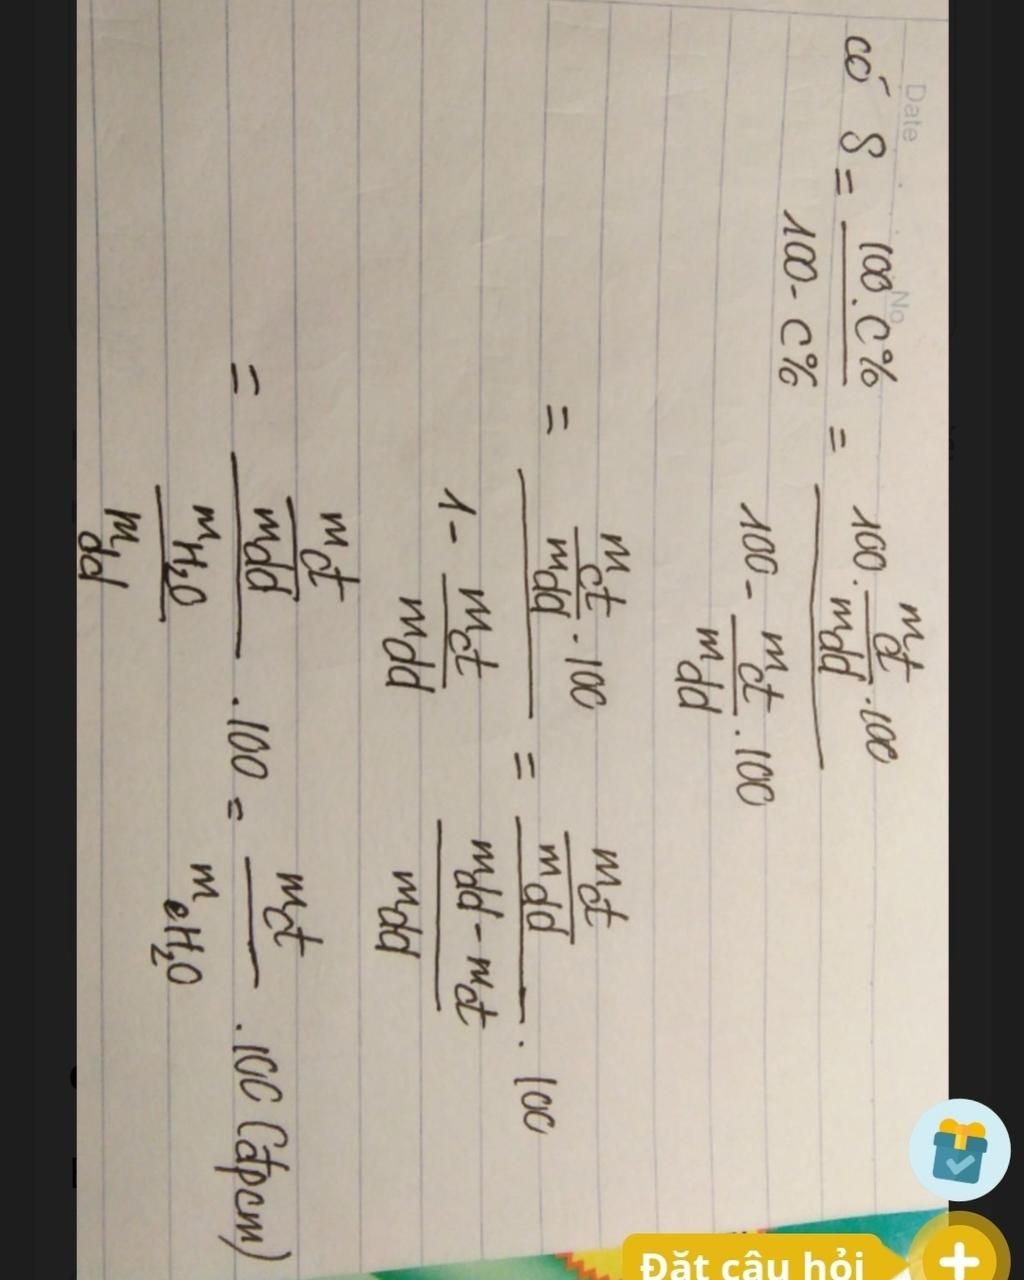 Date
No
có S = (100 . C%)/(100 - C%) = (100 . mct/mdd . 100)/(100 - mct/mdd . 100)
= (mct/mdd . 100)/(1 - mct/mdd) = (mct/mdd)/((mdd - mct)/mdd) . 100
= (mct/mdd)/(mH₂O/mdd) . 100 = mct/mH₂O . 100 (đpcm)
Đặt câu hỏi